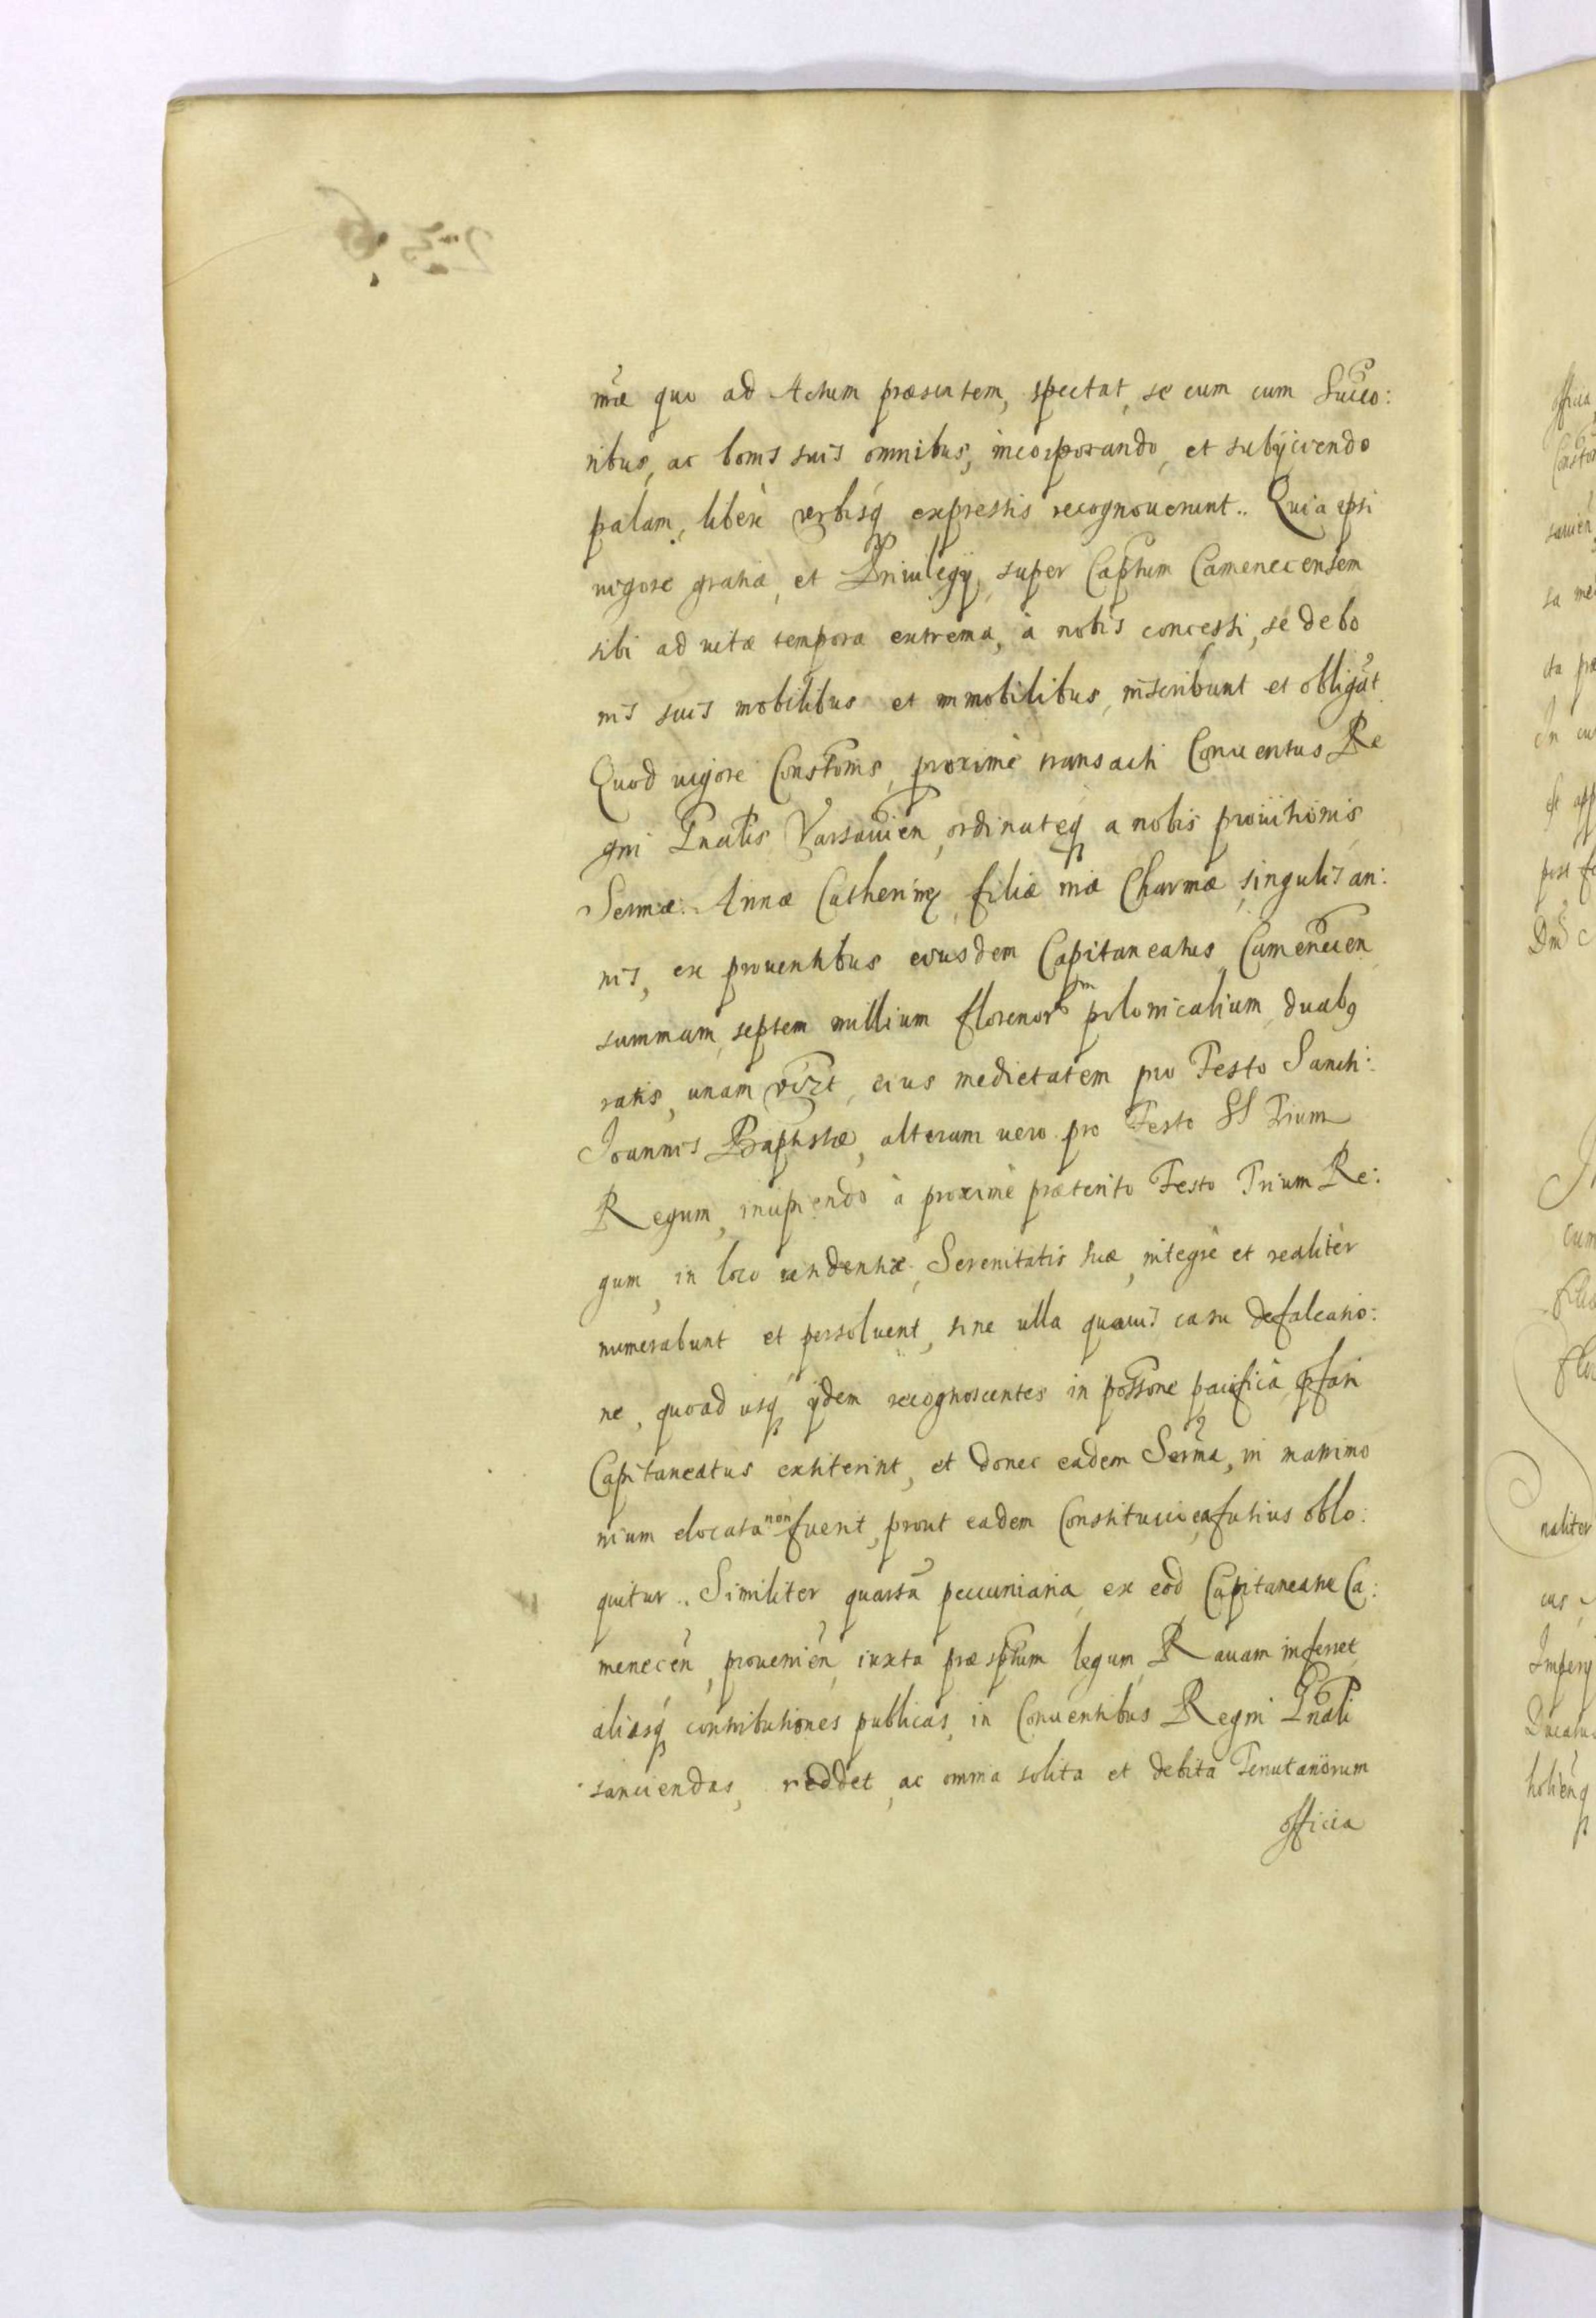 mæ quo ad Actum præsentem, spectat, se cum cum Succo:
ribus, ac bonis suis omnibus, incorporando, et subÿciendo
palam, liberè verbisq expressis recognoverunt.. Quia epsi
vigore gratiæ, et Privilegÿ, super Captum Camenecensem
sibi ad vitæ tempora extrema, à nobis concessi, se de bo
nis suis mobilibus et immobilibus, inscribunt et obligat
Quod vigore Constonis, proximè transacti Conventus Re
gni Gnalis Varsavien, ordinatæq a nobis provisionis
Sermæ. Annæ Catherinæ, filiæ nræ Charmæ, singulis an:
nis, ex proventibus eiusdem Capitaneatus, Camenecen
summam, septem millium florenorum polonicalium, duabq
ratis, unam vizt, eius medietatem pro Festo Sancti:
Joannis Baptistæ, alteram vero pro Festo SS Trium
Regum, incipiendo à proximè præterito Festo Trium Re:
gum, in loco residentiæ, Serenitatis suæ, integrè et realitèr
numerabunt et persolvent, sine ulla quavis casu defalcatio:
ne, quoad usq, ijdem recognoscentes in possone pacificà, pfati
Capitaneatus extiterint, et donec eadem Serma, in matrimo
nium elocata non fuerit, prout eadem Constitucio, ea fusius oblo:
quitur.. Similiter quartã pecuniaria, ex eod Capitaneatu Ca:
menecen, provenien, iuxta præsptum legum, Ravam inferret
aliasq contributiones publicas, in Conventibus Regni Gnali
sanciendas, reddet, ac omnia solita et debita Tenutariorum
officia